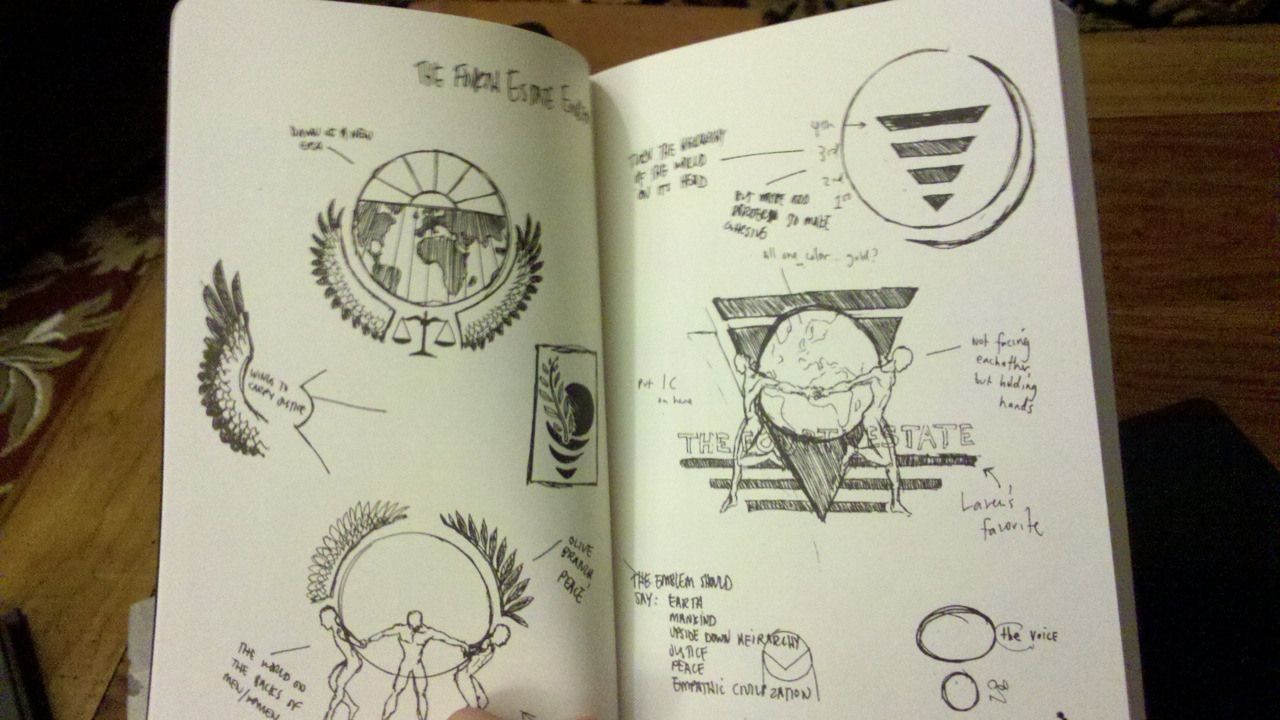 THE FOURTH ESTATE
DAWN OF A NEW
ERA
WINGS TO
CARRY JUSTICE
OLIVE
BRANCH
PEACE
THE WORLD ON
THE BACKS OF
MEN/WOMEN
TURN THE HEIRARCHY
OF THE WORLD
ON ITS HEAD
4th
3rd
2nd
1st
BUT
TO MAKE
COHESIVE
all one color.. gold?
Not facing
eachother,
but holding
hands
put
on here
THE FOURTH ESTATE
Laven's
favorite
THE EMBLEM SHOULD
SAY: EARTH
MANKIND
UPSIDE DOWN HEIRARCHY
JUSTICE
PEACE
EMPATHIC CIVILIZATION
the voice